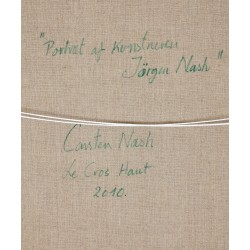 "Portræt af Kunstneren
Jørgen Nash"
Carsten Nash
Le Cros Haut
2010.